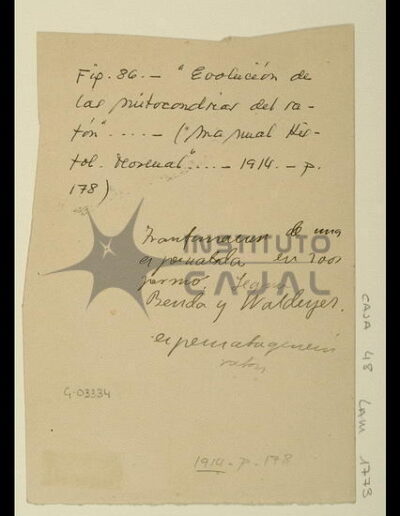 Fig. 86.— "Evolución de
las mitocondrias del ra-
tón" ..... — ("Manual His-
tol. Normal" .... — 1914. — p.
178)
Transformacion de una
espermatida en zoos
permo. Segun
Benda y Waldeyer.
espermatogenesis
raton
G-03334
1914. p. 178
INSTITUTO
CAJAL
CAJA 48 LAM 1773